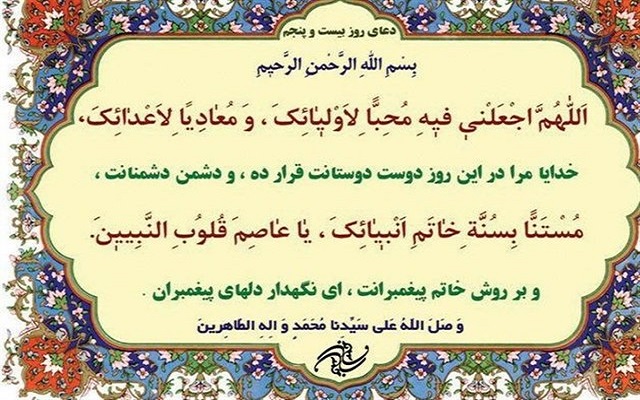 دعای روز بیست و پنجم
بِسْمِ اللهِ الرَّحْمنِ الرَّحیمِ
اَللّهُمَّ اجْعَلْني فيهِ مُحِبًّا لِاَوْلِیائِکَ ، وَ مُعادِیًا لِاَعْدائِکَ،
خدایا مرا در این روز دوست دوستانت قرار ده ، و دشمن دشمنانت ،
مُسْتَنًّا بِسُنَّةِ خاتَمِ اَنْبِیائِکَ ، یا عاصِمَ قُلُوبِ النَّبِیینَ.
و بر روش خاتم پیغمبرانت ، ای نگهدار دلهای پیغمبران .
وَ صَلَ اللهُ عَلی سَیِّدِنا مُحَمَدٍ وَ الِهِ الطاهِرینَ